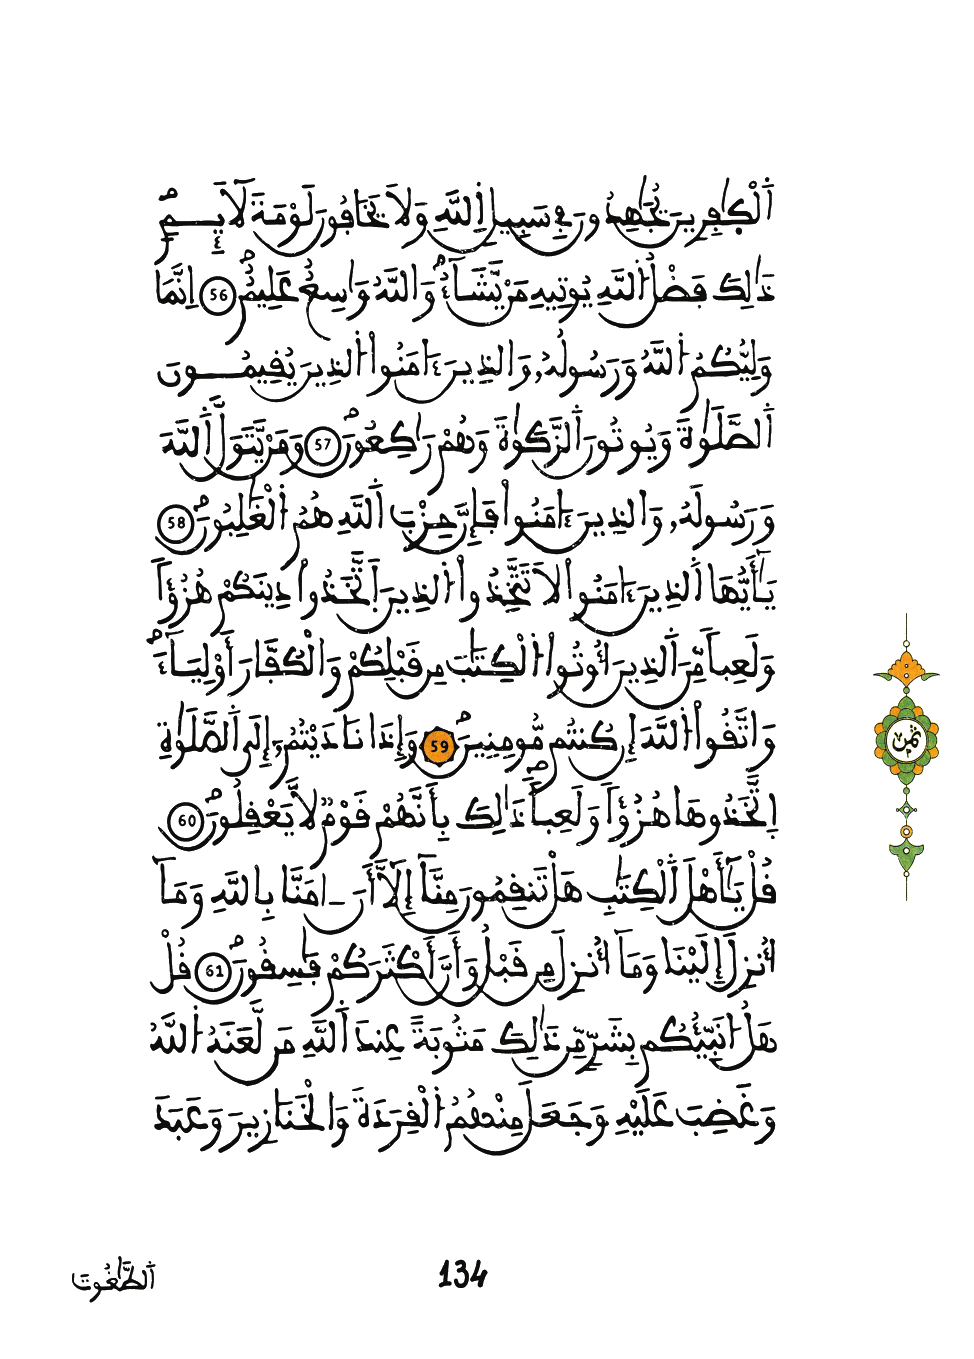 اَ۬لْكٰفِرِينَ يُجَٰهِدُونَ فِے سَبِيلِ اِ۬للَّهِ وَلَا يَخَافُونَ لَوْمَةَ لَآئِمٖ
ذَٰلِكَ فَضْلُ اُ۬للَّهِ يُوتِيهِ مَنْ يَّشَآءُ وَاللَّهُ وَٰسِعٌ عَلِيمٌ 56 إِنَّمَا
وَلِيُّكُمُ اُ۬للَّهُ وَرَسُولُهُۥ وَالذِينَ ءَامَنُوا اُ۬لذِينَ يُقِيمُونَ
اَ۬لصَّلَوٰةَ وَيُوتُونَ اَ۬لزَّكَوٰةَ وَهُمْ رَٰكِعُونَ 57 وَمَنْ يَّتَوَلَّ اَ۬للَّهَ
وَرَسُولَهُۥ وَالذِينَ ءَامَنُوا فَإِنَّ حِزْبَ اَ۬للَّهِ هُمُ اُ۬لْغَٰلِبُونَ 58
يَٰٓأَيُّهَا اَ۬لذِينَ ءَامَنُوا لَا تَتَّخِذُوا اُ۬لذِينَ اَ۪تَّخَذُوا دِينَكُمْ هُزُؤاٗ
وَلَعِباٗ مِّنَ اَ۬لذِينَ أُوتُوا اُ۬لْكِتَٰبَ مِن قَبْلِكُمْ وَالْكُفَّارَ أَوْلِيَآءَ
وَاتَّقُوا اُ۬للَّهَ إِن كُنتُم مُّومِنِينَ 59 وَإِذَا نَادَيْتُمُۥٓ إِلَى اَ۬لصَّلَوٰةِ
اِ۪تَّخَذُوهَا هُزُؤاٗ وَلَعِباٗ ذَٰلِكَ بِأَنَّهُمْ قَوْمٌ لَّا يَعْقِلُونَ 60
قُلْ يَٰٓأَهْلَ اَ۬لْكِتَٰبِ هَلْ تَنقِمُونَ مِنَّآ إِلَّآ أَنَ اٰمَنَّا بِاللَّهِ وَمَآ
أُنزِلَ إِلَيْنَا وَمَآ أُنزِلَ مِن قَبْلُ وَأَنَّ أَكْثَرَكُمْ فَٰسِقُونَ 61 قُلْ
هَلُ ا۟نَبِّئُكُم بِشَرّٖ مِّن ذَٰلِكَ مَثُوبَةً عِندَ اَ۬للَّهِ مَن لَّعَنَهُ اُ۬للَّهُ
وَغَضِبَ عَلَيْهِ وَجَعَلَ مِنْهُمُ اُ۬لْقِرَدَةَ وَالْخَنَازِيرَ وَعَبَدَ
ثمن
134
اَ۬لطَّٰغُوتَ